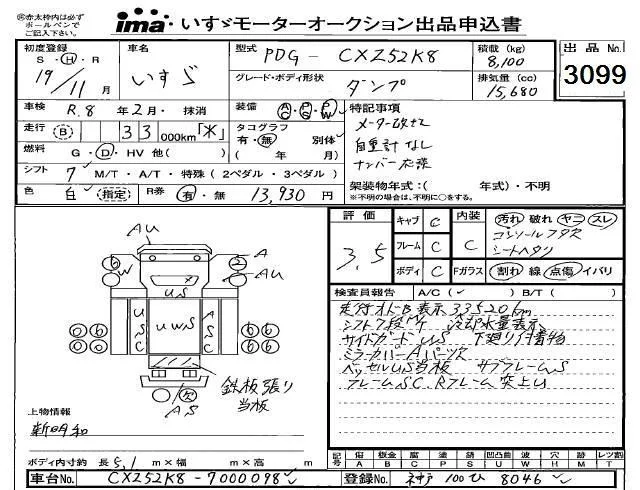 ※赤太枠内は必ず
ボールペンで
ご記入下さい。
ima いすゞモーターオークション出品申込書
初度登録
S・H・R
19/11月
車名
いすゞ
型式 PDG-CXZ52K8
グレード・ボディ形状
ダンプ
積載 (kg)
8,100
排気量 (cc)
15,680
出品No.
3099
車検 R.8年2月・抹消
装備 AC PS PW
走行 (B) 33 000km「米」
タコグラフ
有・無 別体
( 年 月)
燃料 G・D・HV 他( )
シフト 7 M/T・A/T・特殊(2ペダル・3ペダル)
色 白 (指定) R券 有・無 13,930円
特記事項
メーター改ザ
自重計なし
ナンバー応談
架装物年式:( 年式)・不明
※不明の場合は、不明に○をする。
評価
3.5
キャブ C
フレーム C
ボディ C
内装 C
汚れ 破れ ヤニ スレ
コンソールフタ欠
シートヘタリ
Fガラス 割れ 線 点傷 イバリ
検査員報告 A/C( ) B/T( )
走行オドB表示 33520km
シフト7段 冷却水量表示
サイドガードUS 下廻り付着物
ミラーカバーAパーツ欠
ベッセルUS当板 サブフレームS
フレームSC.Rフレーム突上U
AU
A
AU
W
US
USC
UWS
ASC
AS
鉄板張り
当板
上物情報
新明和
ボディ内寸約 長5.1m×幅 m×高 m
記号 傷A 板金B 腐C 塗P 錆S 凹凸曲U 波W 穴H 時M レツ割T
車台No. CXZ52K8-7000098
登録No. 神戸 100 ひ 8046